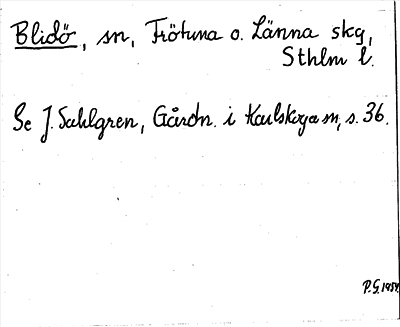 Blidö, sn, Frötuna o. Länna skg,
Sthlm l.
Se J. Sahlgren, Gårdn. i Karlskoga sn, s. 36.
P.G. 1958